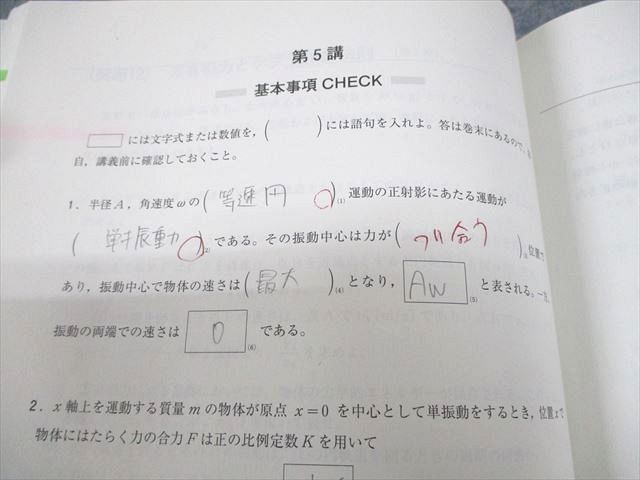 第5講
基本事項 CHECK
□ には文字式または数値を，(　　)には語句を入れよ。答は巻末にあるので，各
自，講義前に確認しておくこと。
1．半径A，角速度ωの(等速円)(1)運動の正射影にあたる運動が
(単振動)(2)である。その振動中心は力が(つり合う)(3)位置で
あり，振動中心で物体の速さは(最大)(4)となり，Aω(5)と表される。一方，
振動の両端での速さは 0 (6)である。
2．x 軸上を運動する質量 m の物体が原点 x=0 を中心として単振動をするとき，位置xで
物体にはたらく力の合力Fは正の比例定数Kを用いて